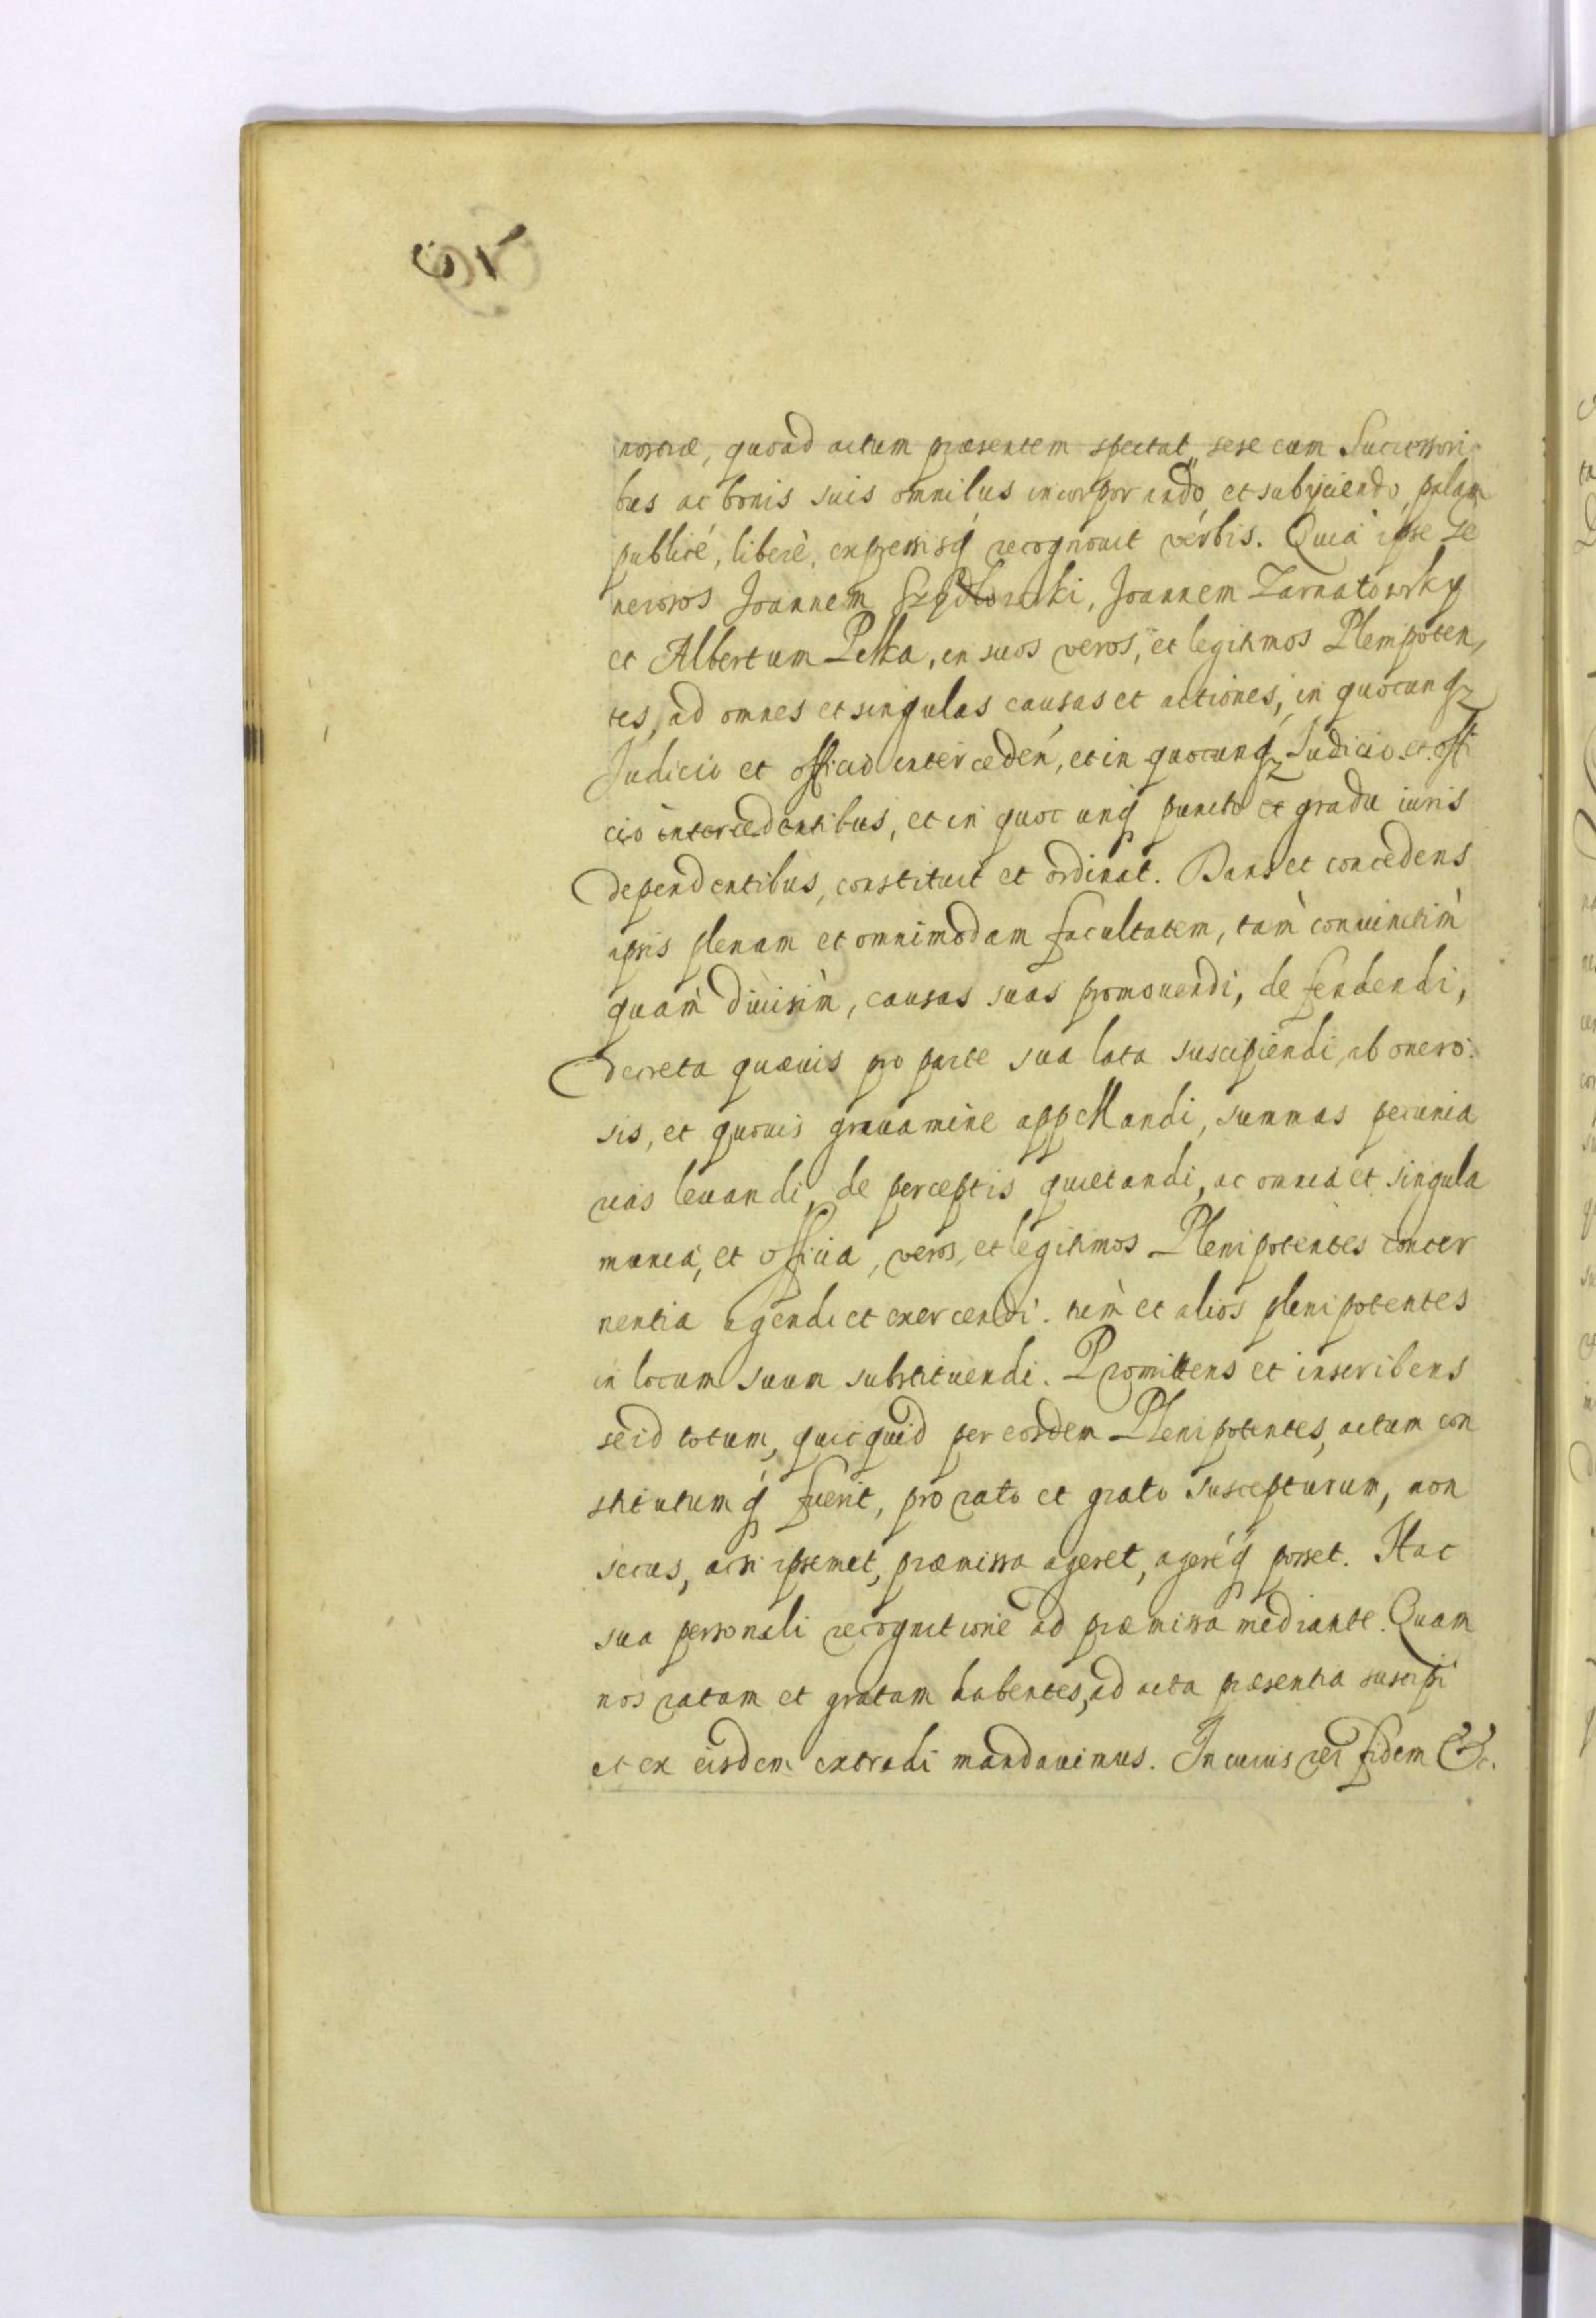 nostræ, quoad actum præsentem spectat, sese cum Successori
bus ac bonis suis omnibus incorporando, et subÿciendo, palam
publicé, liberè, expressisq́ recognouit verbis. Quia ipse Ge
nerosos Joannem Joannem Zarnatowsky
et Albertum Pełka, in suos veros, et legitimos Plenipoten,
tes, ad omnes et singulas causas et actiones, in quocunqz
Judicio et officio interceden, et in quocunqz Judicio et offi
cio intercedentibus, et in quocunq́ puncto et gradu iuris
dependentibus, constituit et ordinat. Dans et concedens
ipsis plenam et omnimodam facultatem, tam̀ coniunctim̀
quam̀ diuisim̀, causas suas promouendi, defendendi,
decreta quæuis pro parte sua lata suscipiendi, ab onero:
sis, et quouis grauamine appellandi, summas pecunia
rias leuandi, de perceptis quietandi, ac omnia et singula
munia, et officia, veros, et legitimos Plenipotentes concer
nentia agendi et exercendi. tum̀ et alios plenipotentes
in locum suum substituendi. Promittens et inscribens
se id totum, quicquid per eosdem Plenipotentes, actum con
stitutumq́ fuerit, pro rato et grato suscepturum, non
secus, acsi ipsemet, præmissa ageret, agereq́ posset. Hac
sua personali recognitione ad præmissa mediante. Quam
nos ratam et gratam habentes, ad acta præsentia suscipi
et ex eisdem extradi mandauimus. In cuius rei fidem &c.